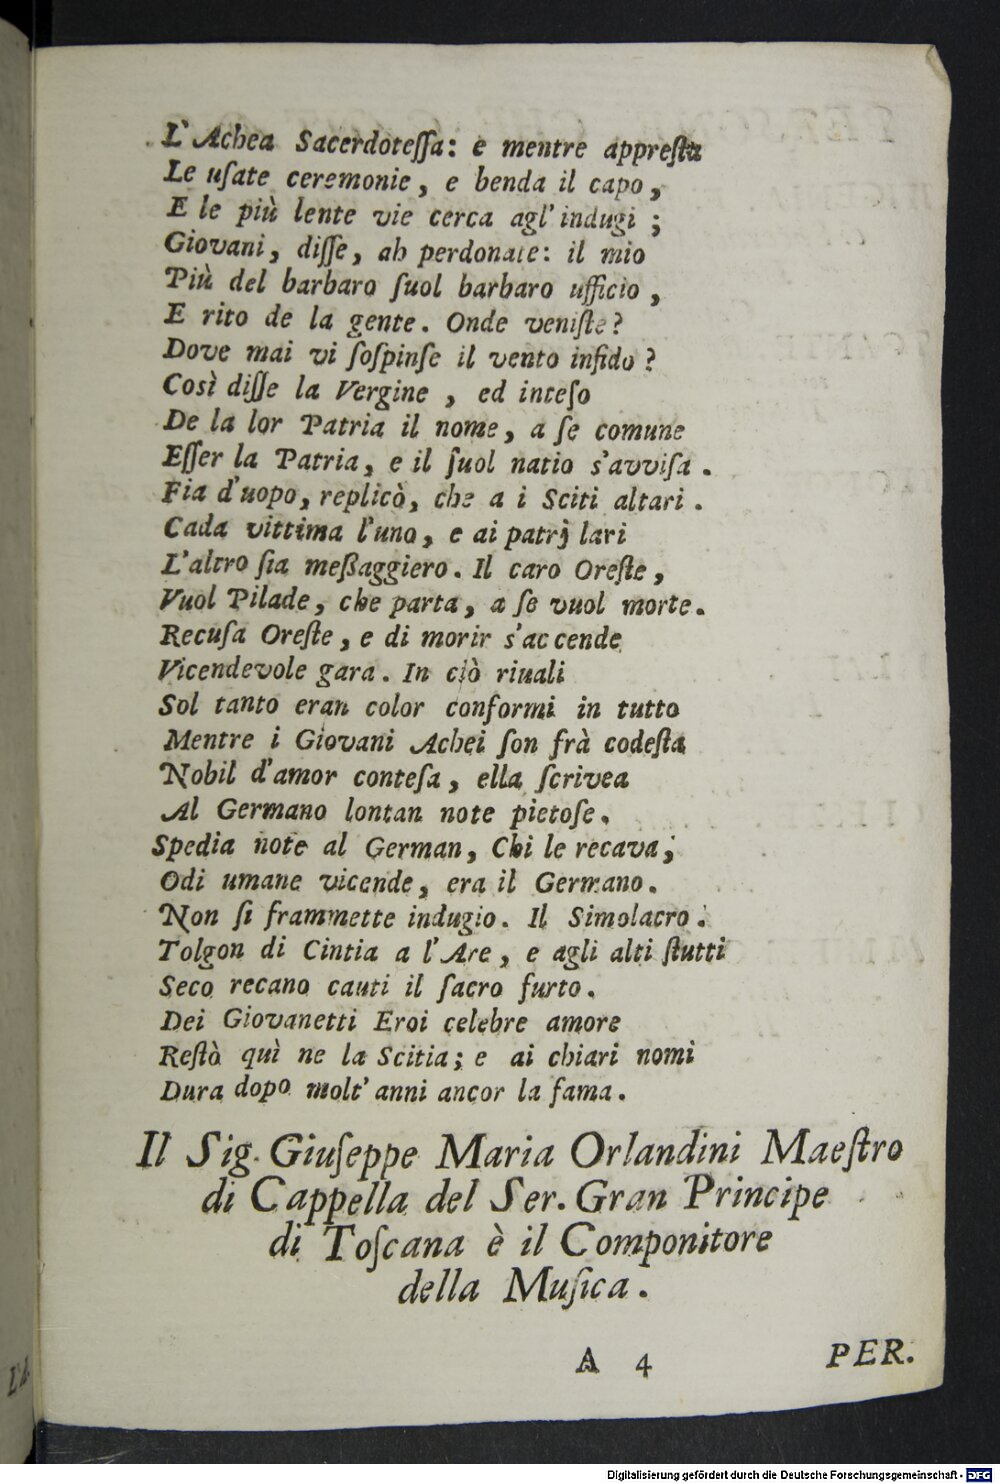 L'Achea Sacerdoteſſa: e mentre appreſta
Le uſate ceremonie, e benda il capo,
E le più lente vie cerca agl'indugi;
Giovani, diſſe, ah perdonate: il mio
Più del barbaro ſuol barbaro ufficio,
E rito de la gente. Onde veniſte?
Dove mai vi ſoſpinſe il vento infido?
Così diſſe la Vergine, ed inteſo
De la lor Patria il nome, a ſe comune
Eſſer la Patria, e il ſuol natio s'avviſa.
Fia d'uopo, replicò, che a i Sciti altari.
Cada vittima l'uno, e ai patrj lari
L'altro ſia meßaggiero. Il caro Oreſte,
Vuol Pilade, che parta, a ſe vuol morte.
Recuſa Oreſte, e di morir s'accende
Vicendevole gara. In ciò riuali
Sol tanto eran color conformi in tutto
Mentre i Giovani Achei ſon frà codeſta
Nobil d'amor conteſa, ella ſcrivea
Al Germano lontan note pietoſe.
Spedia note al German, Chi le recava;
Odi umane vicende, era il Germano.
Non ſi frammette indugio. Il Simolacro.
Tolgon di Cintia a l'Are, e agli alti flutti
Seco recano cauti il ſacro furto.
Dei Giovanetti Eroi celebre amore
Reſtò quì ne la Scitia; e ai chiari nomi
Dura dopo molt'anni ancor la fama.
Il Sig. Giuſeppe Maria Orlandini Maeſtro
di Cappella del Ser. Gran Principe
di Toſcana è il Componitore
della Muſica.
A 4
PER.
Digitalisierung gefördert durch die Deutsche Forschungsgemeinschaft - DFG